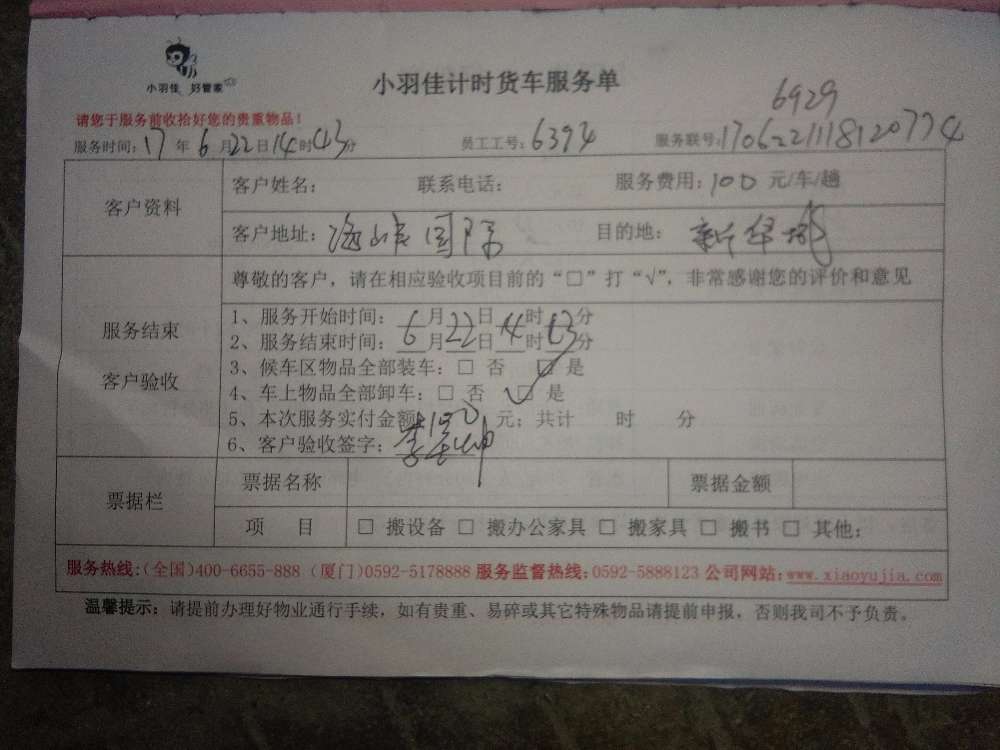 小羽佳 好管家
小羽佳计时货车服务单
6929
请您于服务前收拾好您的贵重物品！
服务时间：17年6月22日14时43分 员工工号：6394 服务联号：170622111818120774
客户资料
客户姓名： 联系电话： 服务费用：100元/车/趟
客户地址： 国际 目的地： 新华城
尊敬的客户，请在相应验收项目前的“□”打“√”，非常感谢您的评价和意见
服务结束
客户验收
1、服务开始时间：6月22日14时13分
2、服务结束时间： 月 日 时 分
3、候车区物品全部装车：□ 否 □ 是
4、车上物品全部卸车：□ 否 □ 是
5、本次服务实付金额 元；共计 时 分
6、客户验收签字：
票据栏
票据名称 票据金额
项 目 □ 搬设备 □ 搬办公家具 □ 搬家具 □ 搬书 □ 其他：
服务热线：(全国)400-6655-888 (厦门)0592-5178888 服务监督热线：0592-5888123 公司网站：www.xiaoyujia.com
温馨提示：请提前办理好物业通行手续，如有贵重、易碎或其它特殊物品请提前申报，否则我司不予负责。